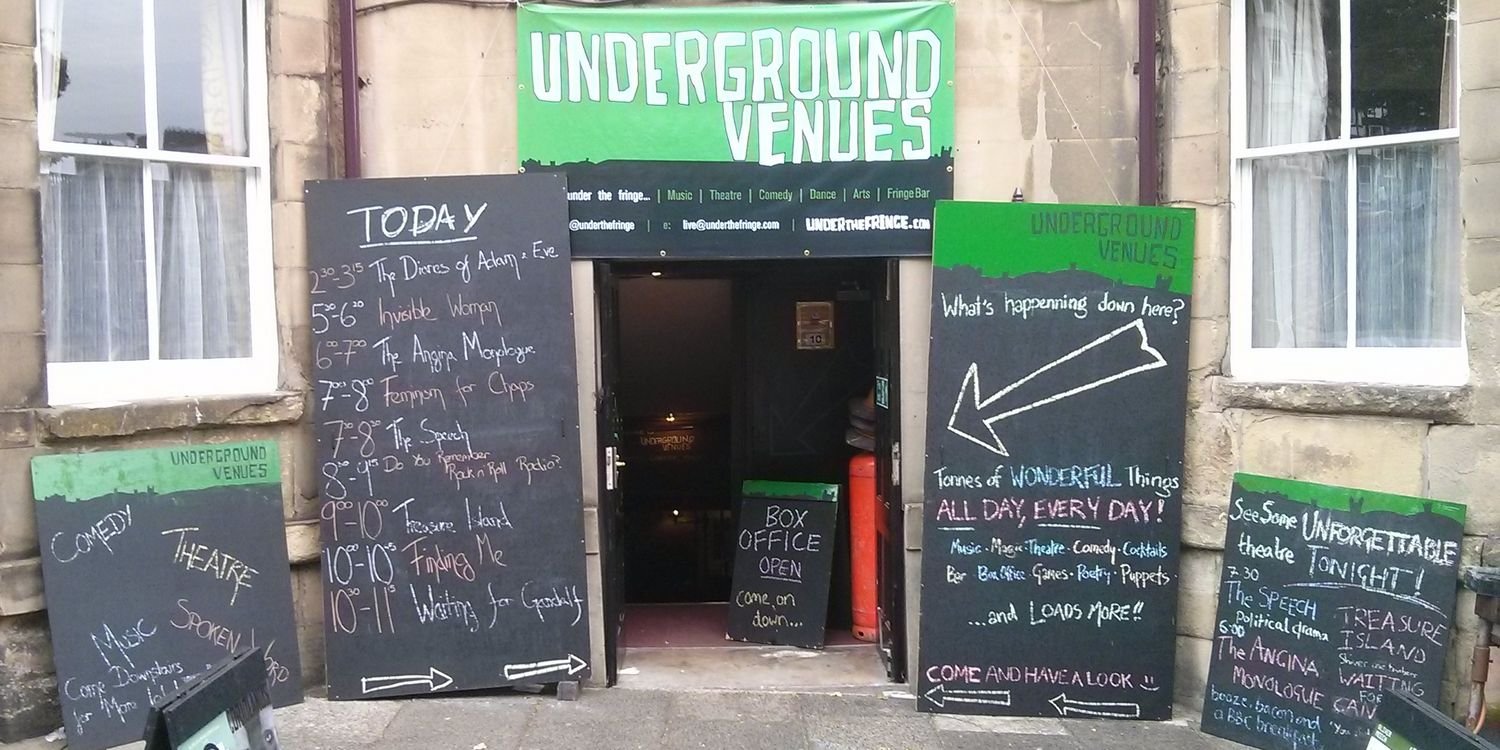 UNDERGROUND
VENUES
under the fringe... | Music | Theatre | Comedy | Dance | Arts | Fringe Bar
@underthefringe | e: live@underthefringe.com | UNDERTHEFRINGE.COM
TODAY
2³⁰-3¹⁵ The Diaries of Adam & Eve
5³⁰-6²⁰ Invisible Woman
6⁰⁰-7⁰⁰ The Angina Monologue
7⁰⁰-8⁰⁰ Feminism for Chaps
7³⁰-8³⁰ The Speech
8³⁰-9¹⁵ Do You Remember
Rock n' Roll Radio?
9⁰⁰-10⁰⁰ Treasure Island
Finding Me
Waiting for Gandalf
UNDERGROUND
VENUES
COMEDY
THEATRE
MUSIC
SPOKEN
Come Downstairs
for More
10
UNDERGROUND
VENUES
BOX
OFFICE
OPEN
Come on
down...
UNDERGROUND
VENUES
What's happenning down here?
Tonnes of WONDERFUL Things
ALL DAY, EVERY DAY!
Music · Magic · Theatre · Comedy · Cocktails
Bar · Box Office · Games · Poetry · Puppets ·
...and LOADS MORE!!
COME AND HAVE A LOOK
See Some UNFORGETTABLE
theatre TONIGHT!
7.30
The SPEECH
Political drama
6:00
The ANGINA
MONOLOGUE
booze, bacon and
a BBC breakfast
TREASURE
ISLAND
WAITING
FOR
GAN